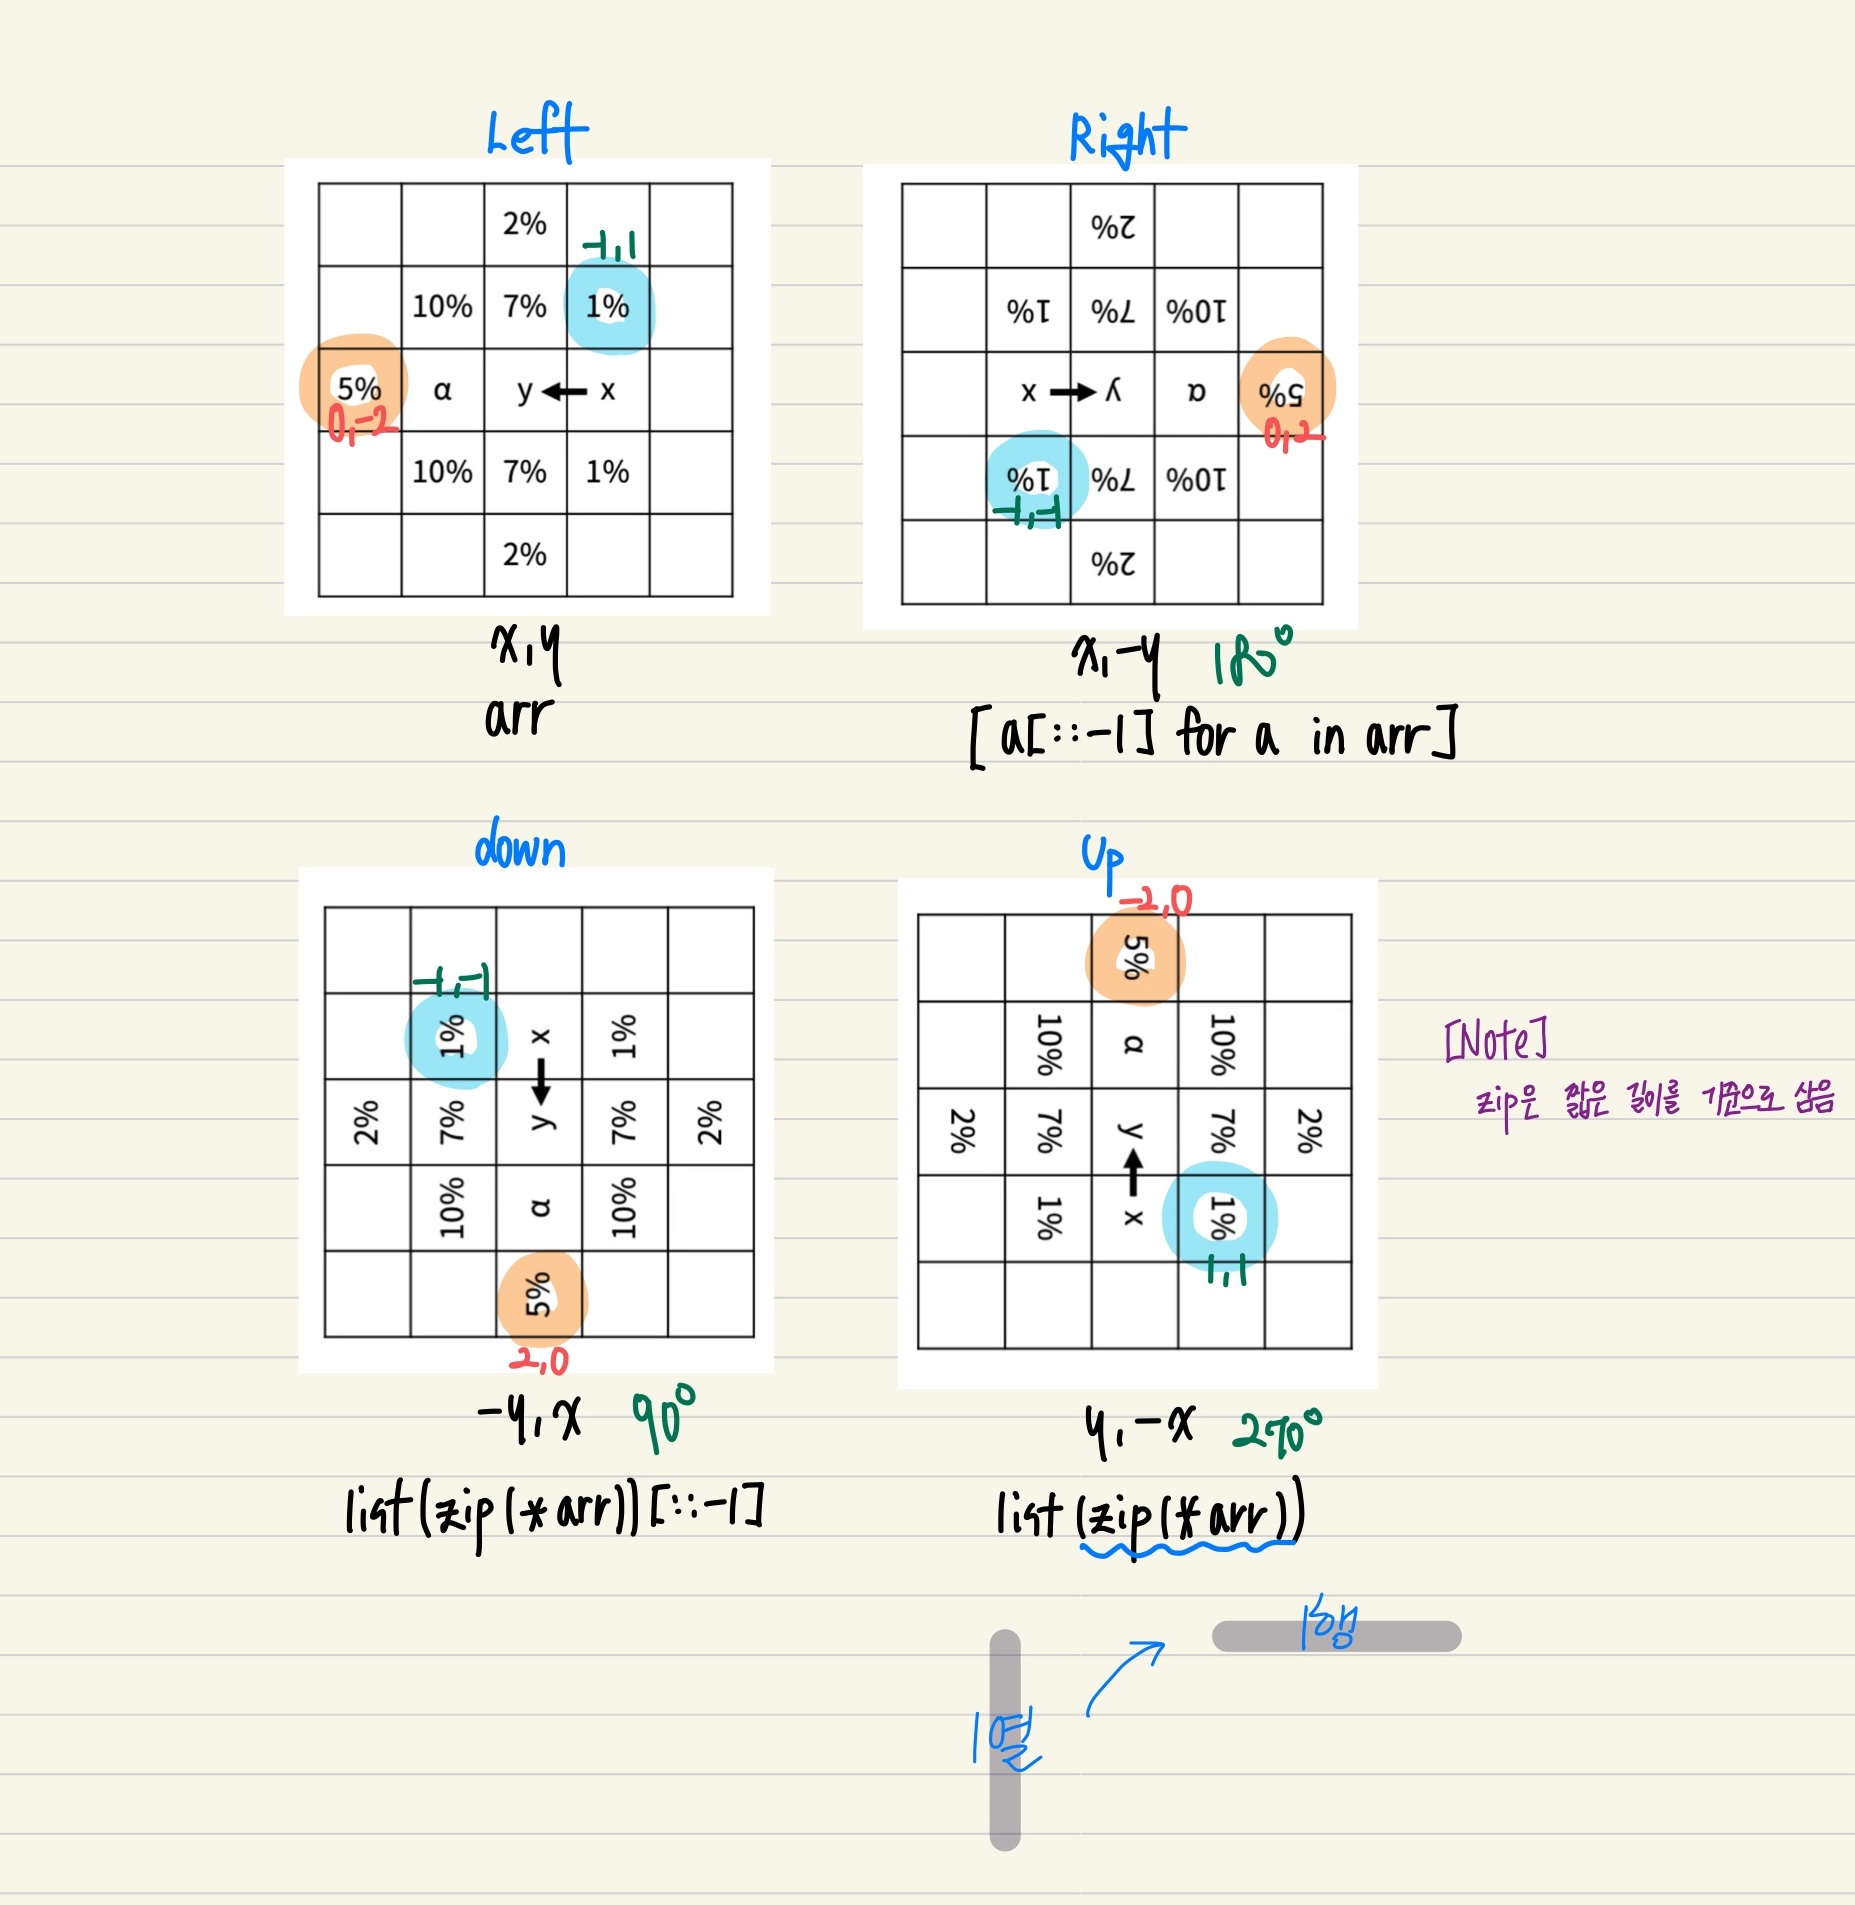 Left
2%
-1,1
10% 7% 1%
5% α y x
0,-2
10% 7% 1%
2%
x,y
arr
Right
2%
1% 7% 10%
x y α 5%
0,2
1% 7% 10%
-1,-1
2%
x,-y 180°
[a[::-1] for a in arr]
down
-1,-1
1% x 1%
2% 7% y 7% 2%
10% α 10%
5%
2,0
-y,x 90°
list(zip(*arr))[::-1]
Up
-2,0
5%
10% α 10%
2% 7% y 7% 2%
1% x 1%
1,1
y,-x 270°
list(zip(*arr))
[Note]
zip은 짧은 길이를 기준으로 삼음
1행
1열